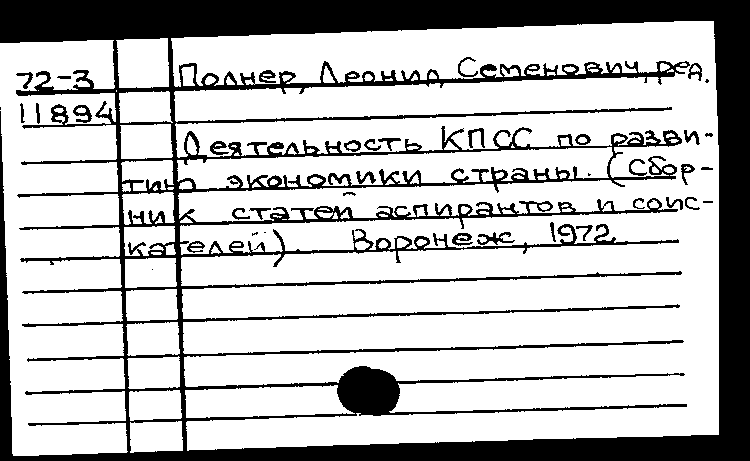 72-3 Полнер, Леонид Семенович, ред.
11894
Деятельность КПСС по разви-
тию экономики страны. (Сбор-
ник статей аспирантов и соис-
кателей). Воронеж, 1972.